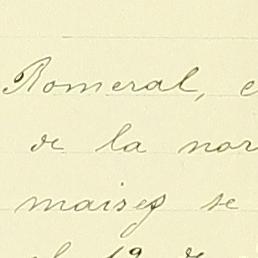 Romeral, e
de la nor
maises se
el 19 de